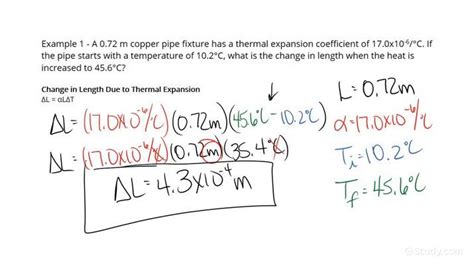 Example 1 - A 0.72 m copper pipe fixture has a thermal expansion coefficient of 17.0x10⁻⁶/°C. If
the pipe starts with a temperature of 10.2°C, what is the change in length when the heat is
increased to 45.6°C?
Change in Length Due to Thermal Expansion
ΔL = αLΔT
ΔL = (17.0x10⁻⁶/°C)(0.72m)(45.6°C - 10.2°C)
ΔL = (17.0x10⁻⁶/°C)(0.72m)(35.4°C)
ΔL = 4.3x10⁻⁴ m
L = 0.72m
α = 17.0x10⁻⁶/°C
Tᵢ = 10.2°C
T_f = 45.6°C
Study.com